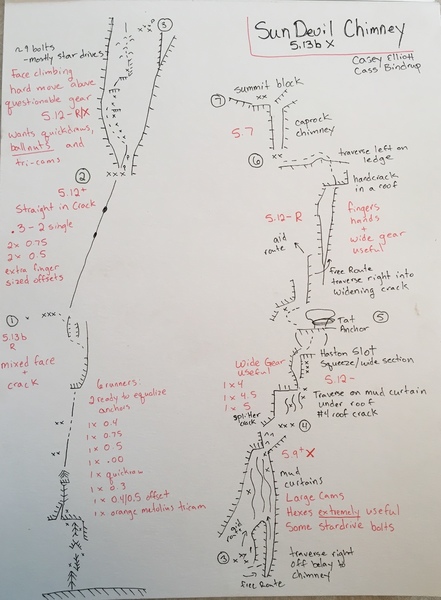 Sun Devil Chimney
5.13b X
Casey Elliott
Cass Bindrup
~9 bolts
- mostly star drives
Face climbing
hard move above
questionable gear
5.12- R/X
wants quickdraws,
ballnuts and
tri-cams
3
2
5.12+
Straight in Crack
.3 - 2 single
2x 0.75
2x 0.5
extra finger
sized offsets
1
5.13b
R
mixed face
+
crack
6 runners
2 ready to equalize
anchors
1x 0.4
1x 0.75
1x 0.5
1x .00
1x quickdraw
1x 0.3
1x 0.4/0.5 offset
1x orange metolius tricam
summit block
7
5.7
caprock
chimney
6
traverse left on
ledge
handcrack
in a roof
5.12- R
fingers
hands
+
wide gear
useful
aid
route
free Route
traverse right into
widening crack
5
Tat
Anchor
Wide Gear
Useful
1x 4
1x 4.5
1x 5
splitter
crack
Haston Slot
squeeze/wide section
5.12-
Traverse on mud curtain
under roof
#4 roof crack
4
5.9+ X
mud
curtains
Large Cams
Hexes extremely useful
Some stardrive bolts
3
traverse right
off belay to
chimney
free Route